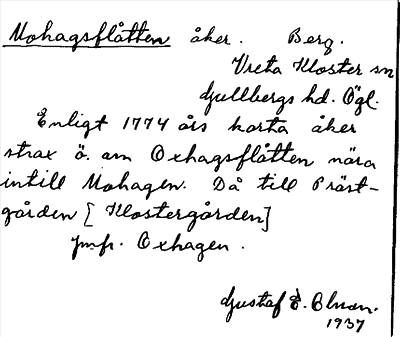 Mohagsflåtten åker. Berg.
Vreta Kloster sn
Gullbergs hd. Ögl.
Enligt 1774 års karta åker
strax ö. om Oxhagsflåtten nära
intill Mohagen. Då till Präst-
gården [Klostergården]
Jmfr. Oxhagen.
Gustaf E. Olson.
1937